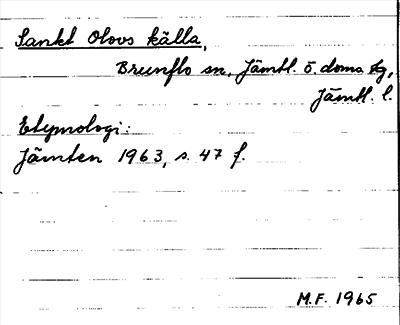 Sankt Olovs källa,
Brunflo sn, Jämtl. ö. doms. tg,
Jämtl. l.
Etymologi:
Jämten 1963, s. 47 f.
M.F. 1965